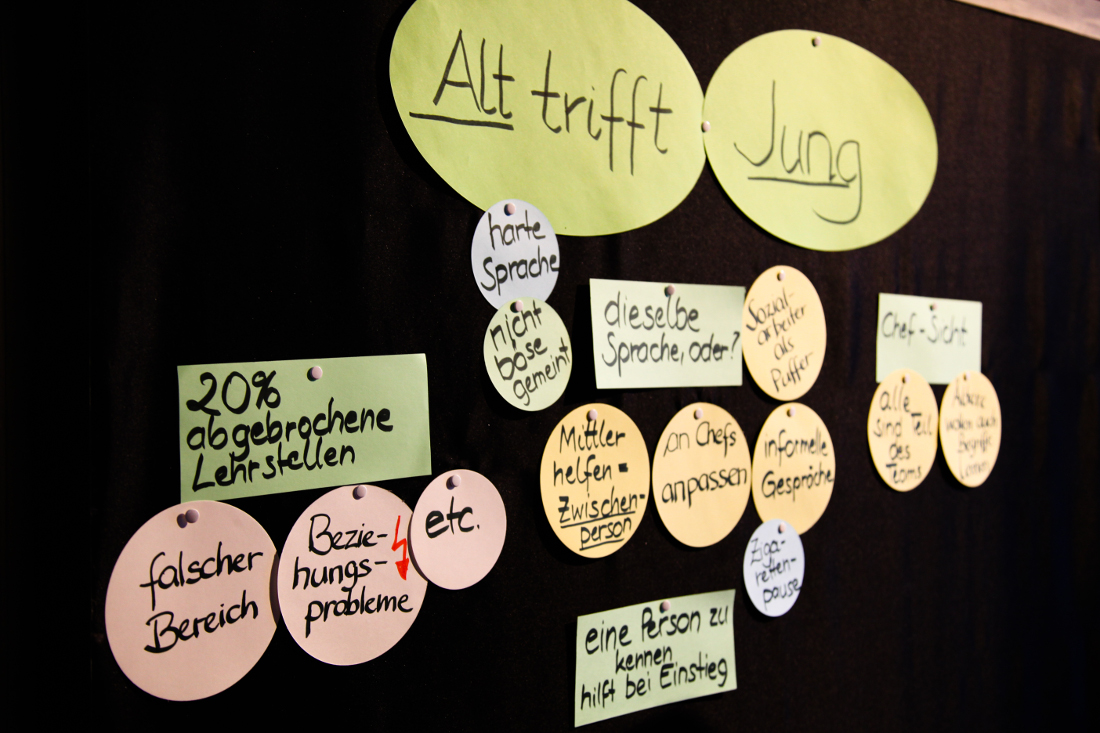 Alt trifft
Jung
harte
Sprache
nicht
böse
gemeint
dieselbe
Sprache, oder?
Sozial-
arbeiter
als
Puffer
Chef-Sicht
alle
sind Teil
des
Teams
wollen auch
Begriffe
lernen
20%
abgebrochene
Lehrstellen
falscher
Bereich
Bezie-
hungs-
probleme
etc.
Mittler
helfen =
Zwischen-
person
an Chefs
anpassen
informelle
Gespräche
Ziga-
retten-
pause
eine Person zu
kennen
hilft bei Einstieg